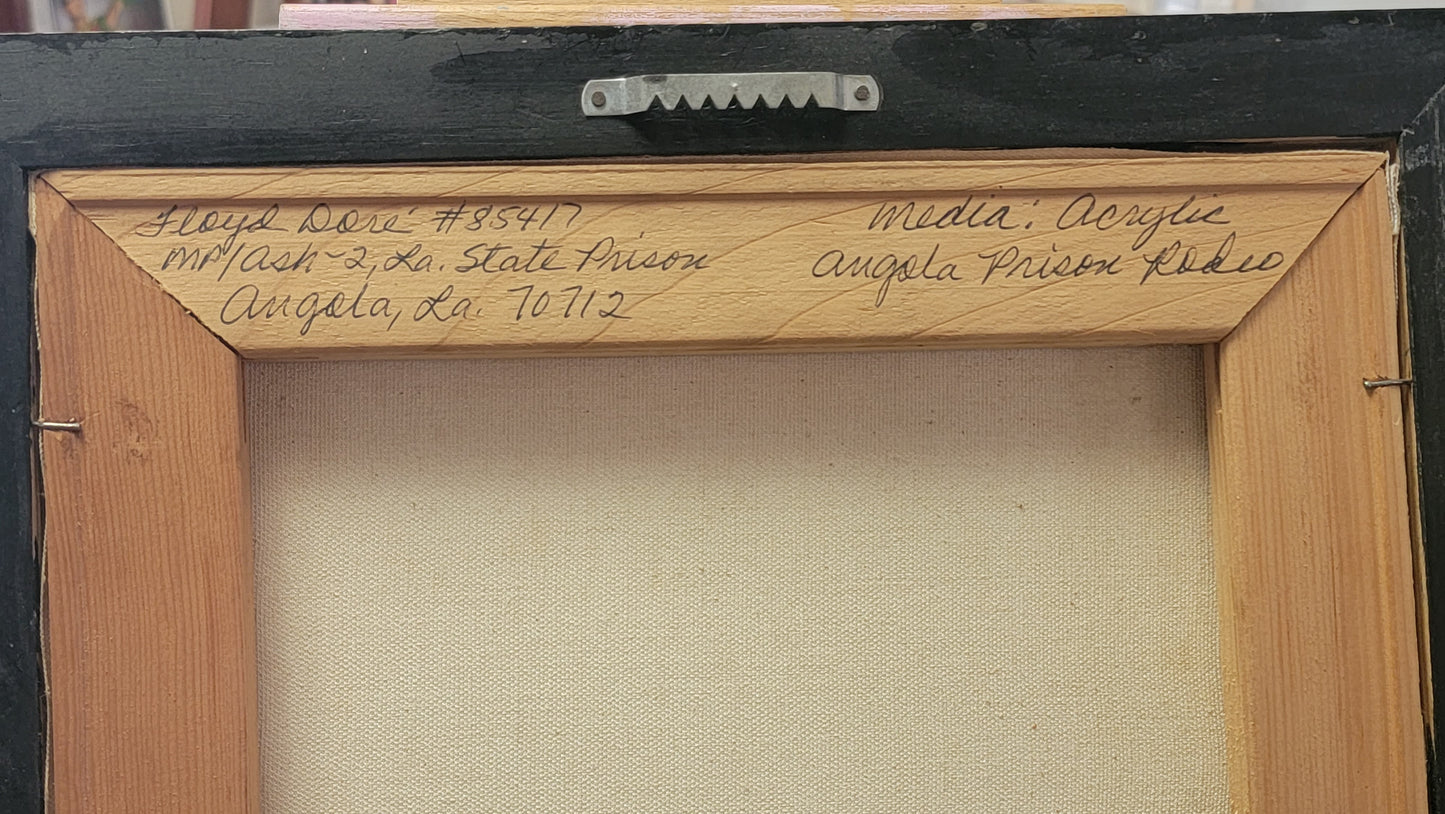 Floyd Doré #85417
MP/Ash-2, La. State Prison
Angola, La. 70712
Media: Acrylic
Angola Prison Rodeo